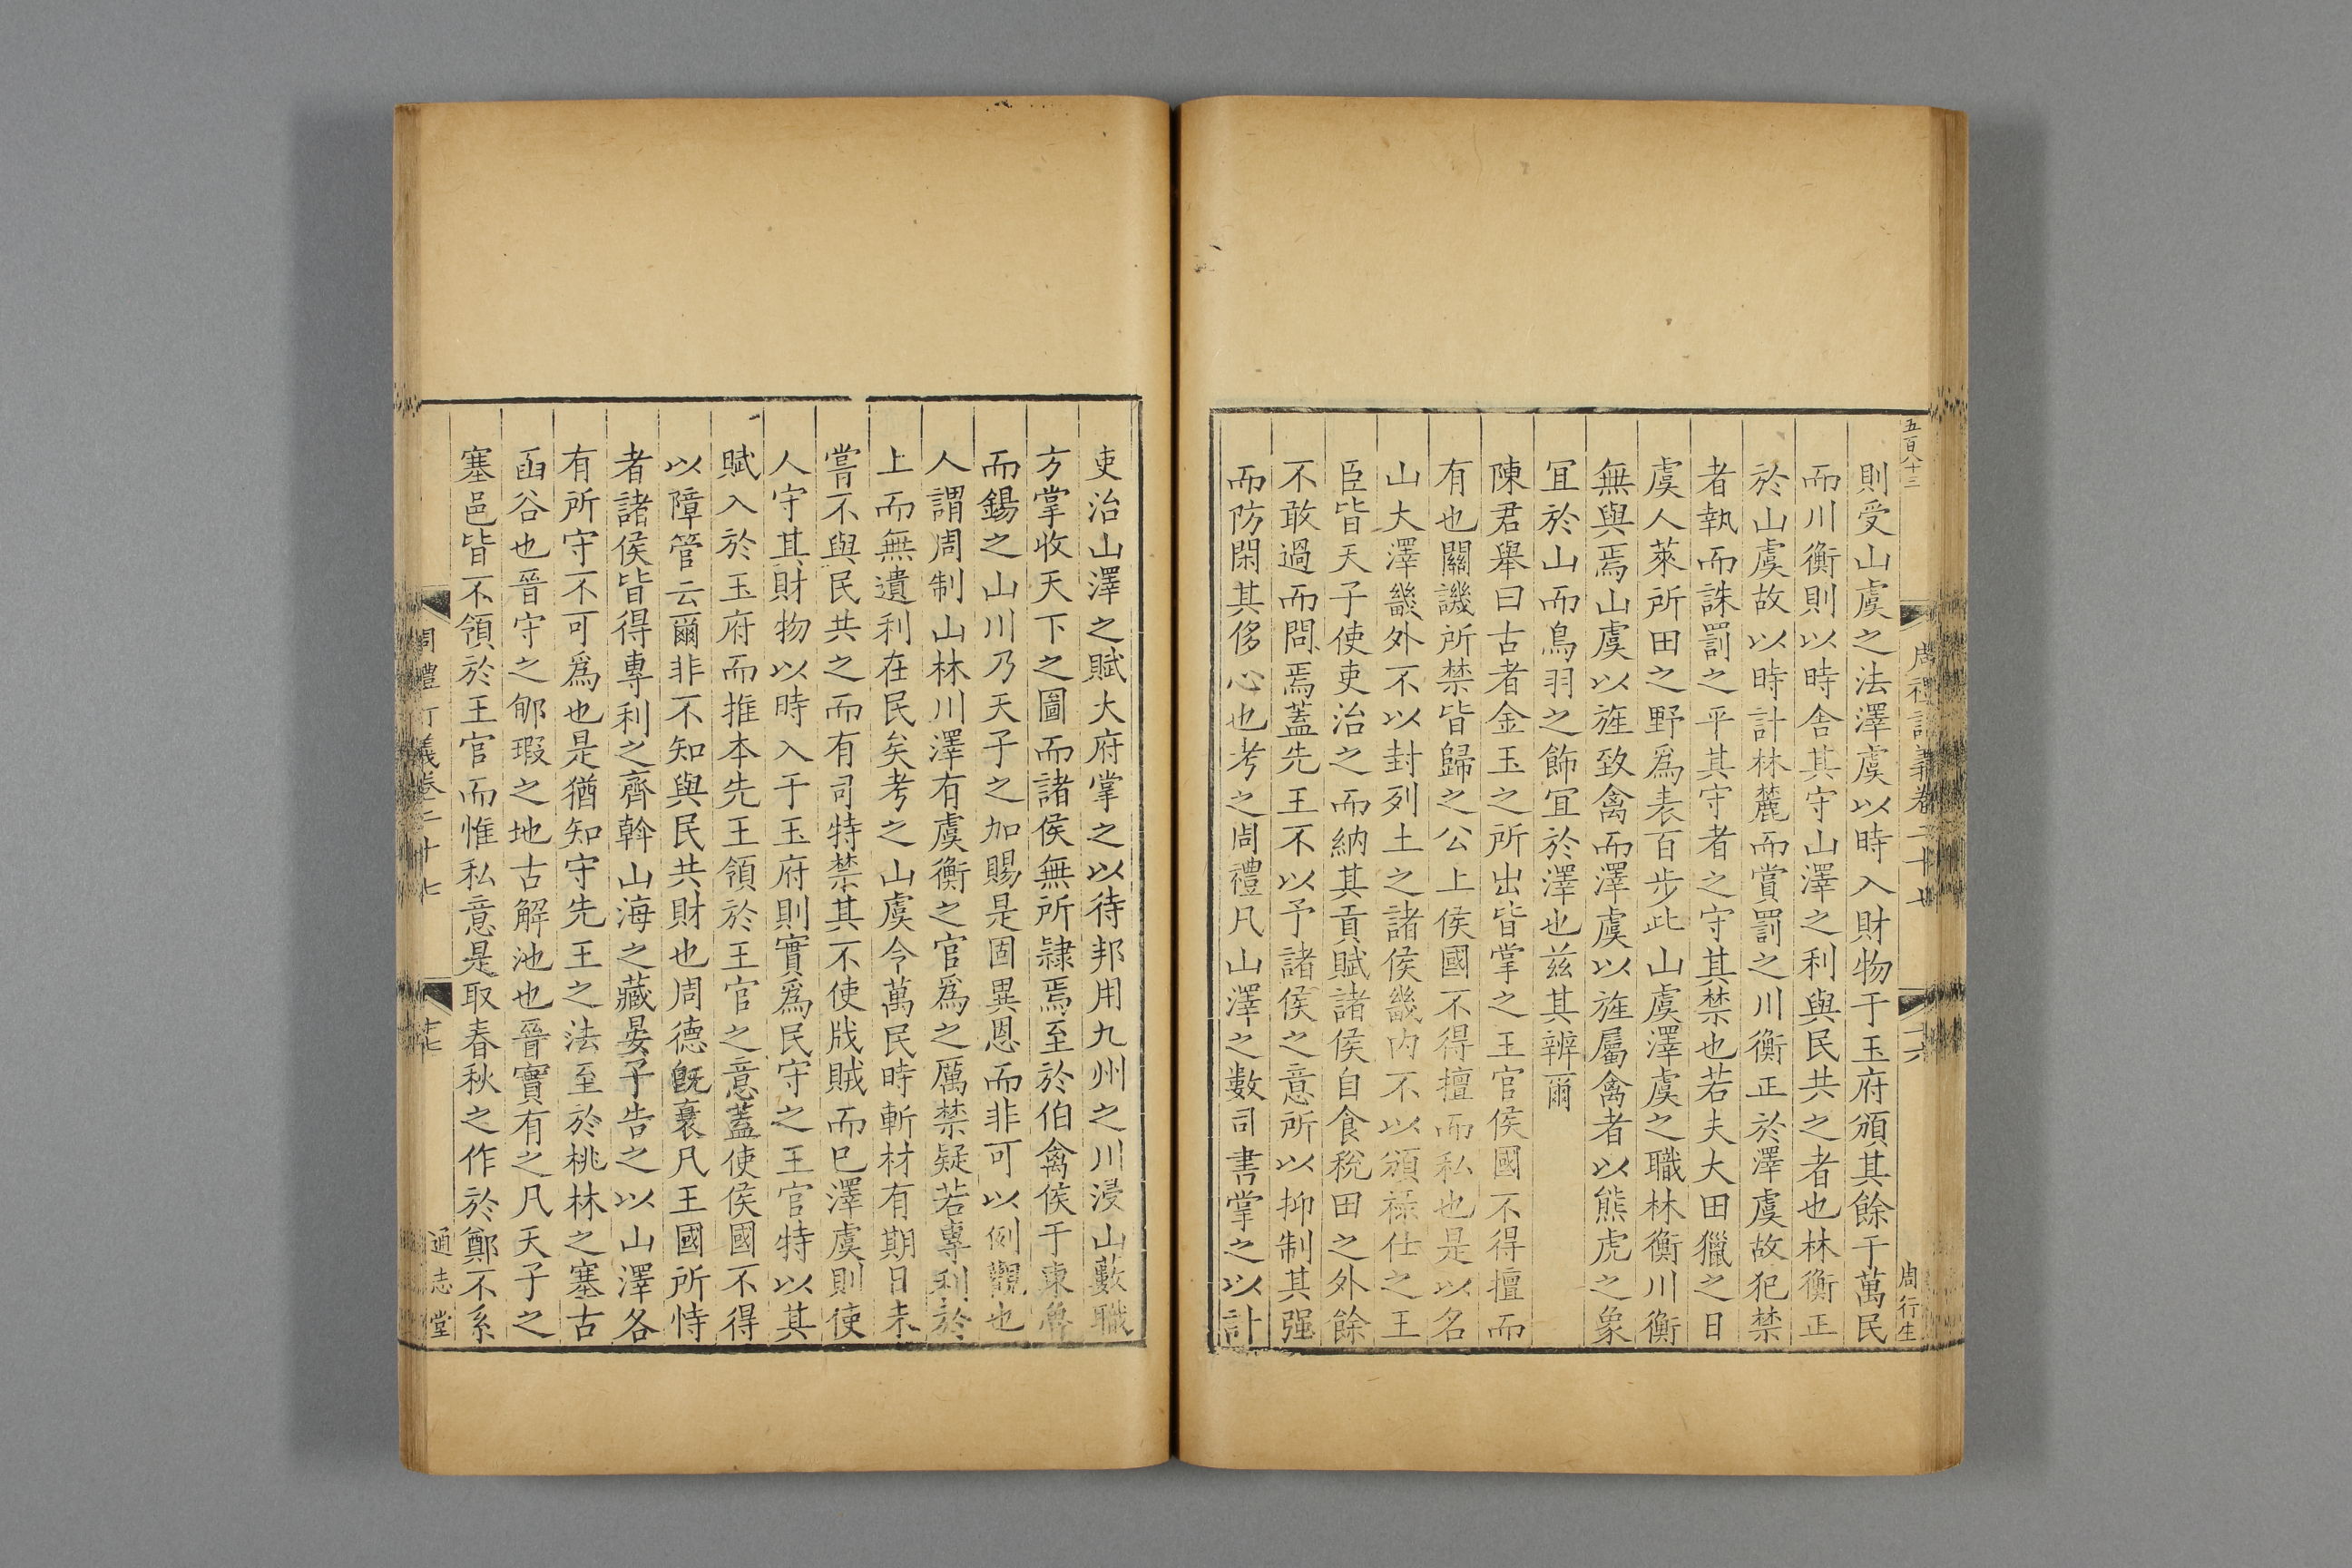 五百八十三
周禮訂義卷二十七
十六
周行生
則受山虞之法澤虞以時入財物于玉府頒其餘于萬民
而川衡則以時舍其守山澤之利與民共之者也林衡正
於山虞故以時計林麓而賞罰之川衡正於澤虞故犯禁
者執而誅罰之平其守者之守其禁也若夫大田獵之日
虞人萊所田之野爲表百步此山虞澤虞之職林衡川衡
無與焉山虞以旌致禽而澤虞以旌屬禽者以熊虎之象
宜於山而鳥羽之飾宜於澤也兹其辨爾
陳君舉曰古者金玉之所出皆掌之王官侯國不得擅而
有也關譏所禁皆歸之公上侯國不得擅而私也是以名
山大澤畿外不以封列土之諸侯畿内不以頒祿仕之王
臣皆天子使吏治之而納其貢賦諸侯自食稅田之外餘
不敢過而問焉蓋先王不以予諸侯之意所以抑制其强
而防閑其侈心也考之周禮凡山澤之數司書掌之以計
吏治山澤之賦大府掌之以待邦用九州之川浸山藪職
方掌收天下之圖而諸侯無所隷焉至於伯禽侯于東魯
而錫之山川乃天子之加賜是固異恩而非可以例觀也
人謂周制山林川澤有虞衡之官爲之厲禁疑若專利於
上而無遺利在民矣考之山虞令萬民時斬材有期日未
嘗不與民共之而有司特禁其不使戕賊而已澤虞則使
人守其財物以時入于玉府則實爲民守之王官特以其
賦入於玉府而推本先王領於王官之意蓋使侯國不得
以障管云爾非不知與民共財也周德旣衰凡王國所恃
者諸侯皆得專利之齊斡山海之藏晏子告之以山澤各
有所守不可爲也是猶知守先王之法至於桃林之塞古
函谷也晉守之郇瑕之地古解池也晉實有之凡天子之
塞邑皆不領於王官而惟私意是取春秋之作於鄭不系
周禮訂義卷二十七
十七
通志堂